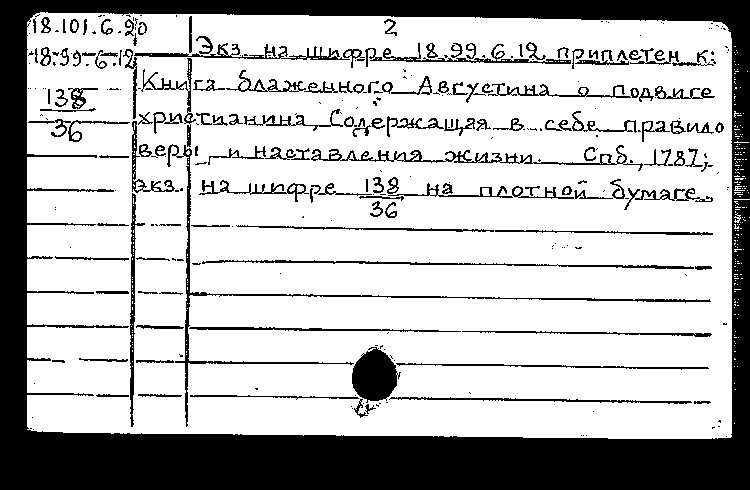 2
18.101.6.20
18.99.6.12
138
36
Экз. на шифре 18.99.6.12 приплетен к:
Книга блаженного Августина о подвиге
христианина, Содержащая в себе правило
веры, и наставления жизни. Спб., 1787;
экз. на шифре 138
36 на плотной бумаге.